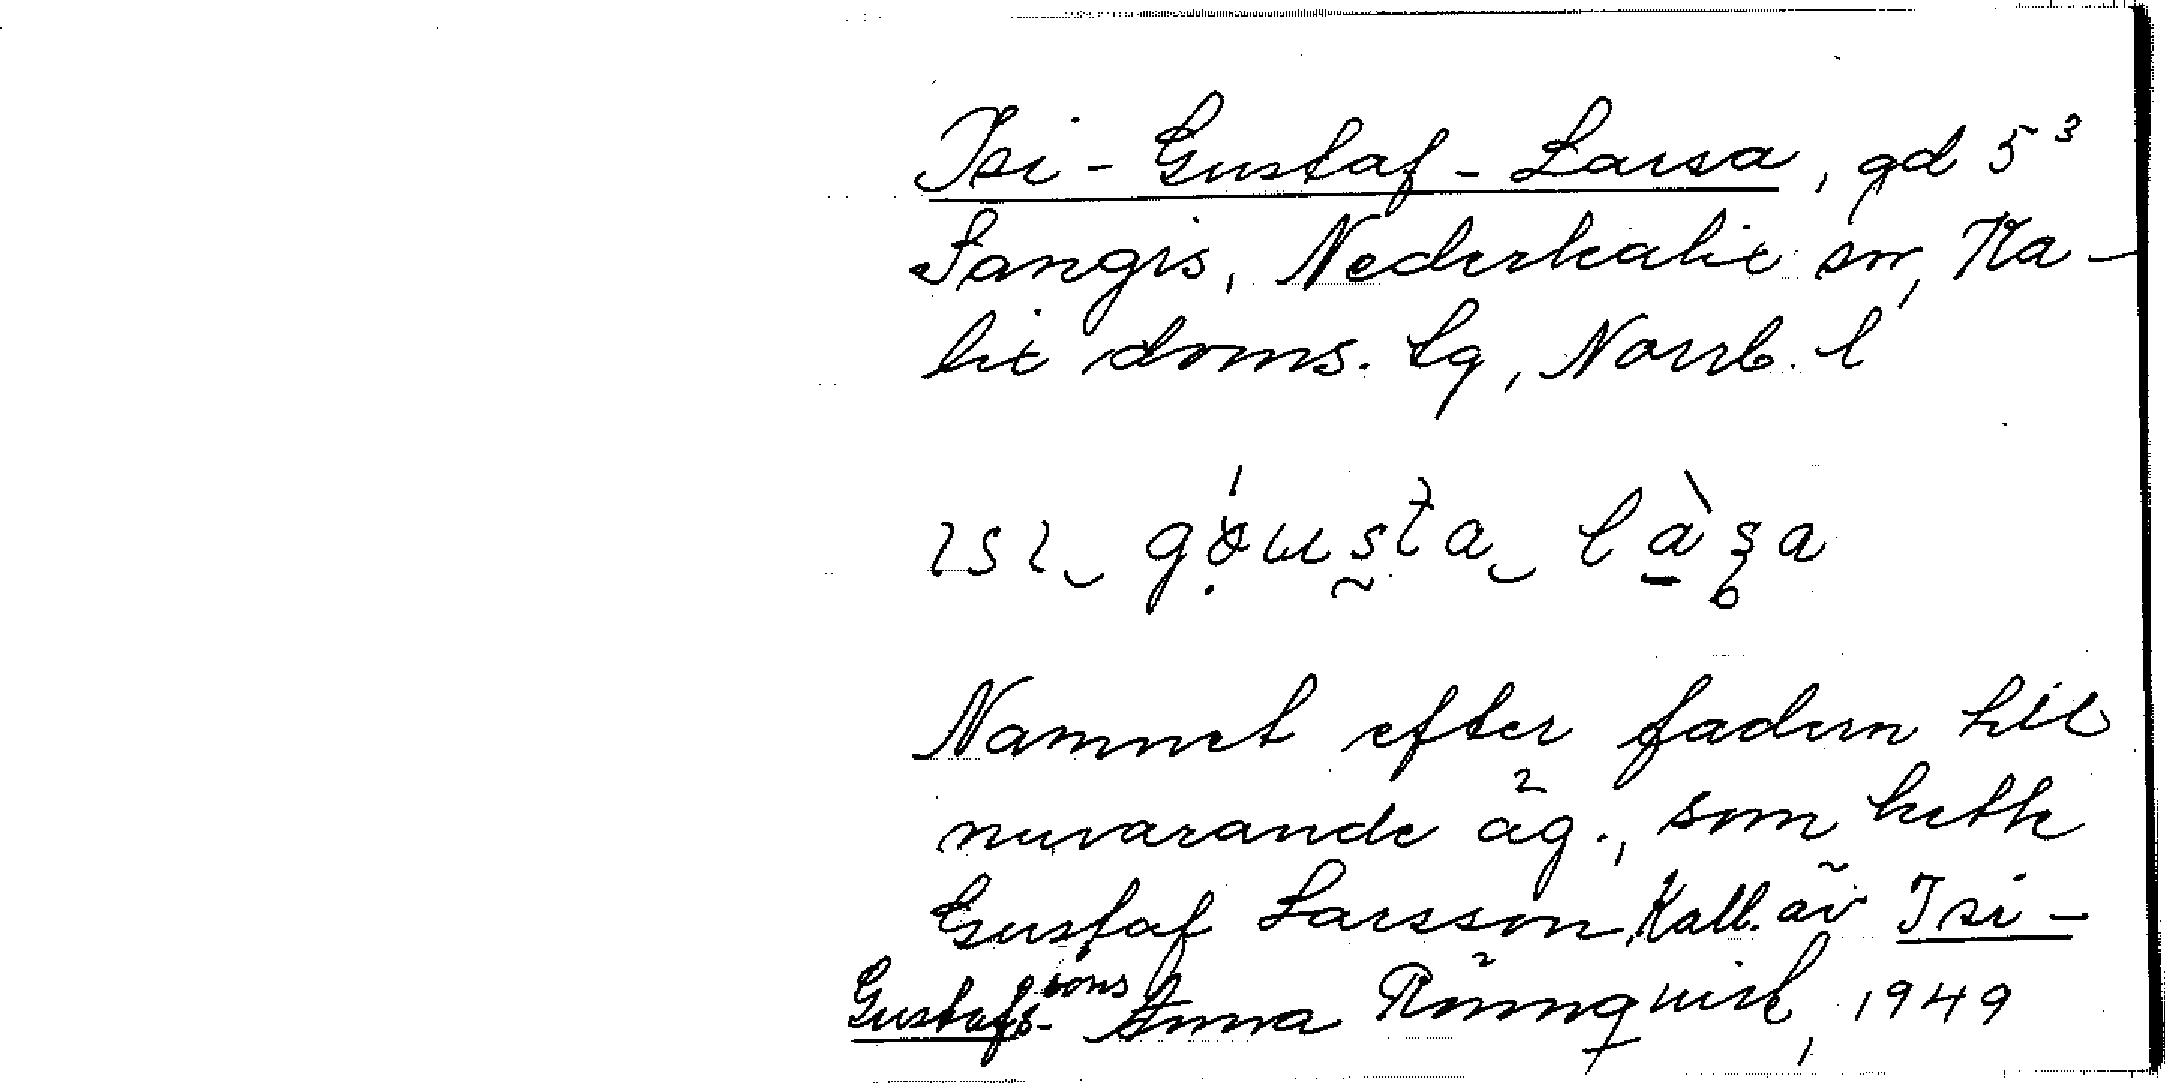 Isi-Gustaf-Larsa, gd 5³
Sangis, Nederkalix sn, Ka-
lix doms. tg, Norrb. l
ısı‿ gɵ́usta‿ là̱ʂa
Namnet efter fadern till
nuvarande äg., som hette
Gustaf Larsson, Kall. äv Isi-
Gustafs- söns Anna Rönnqvist, 1949